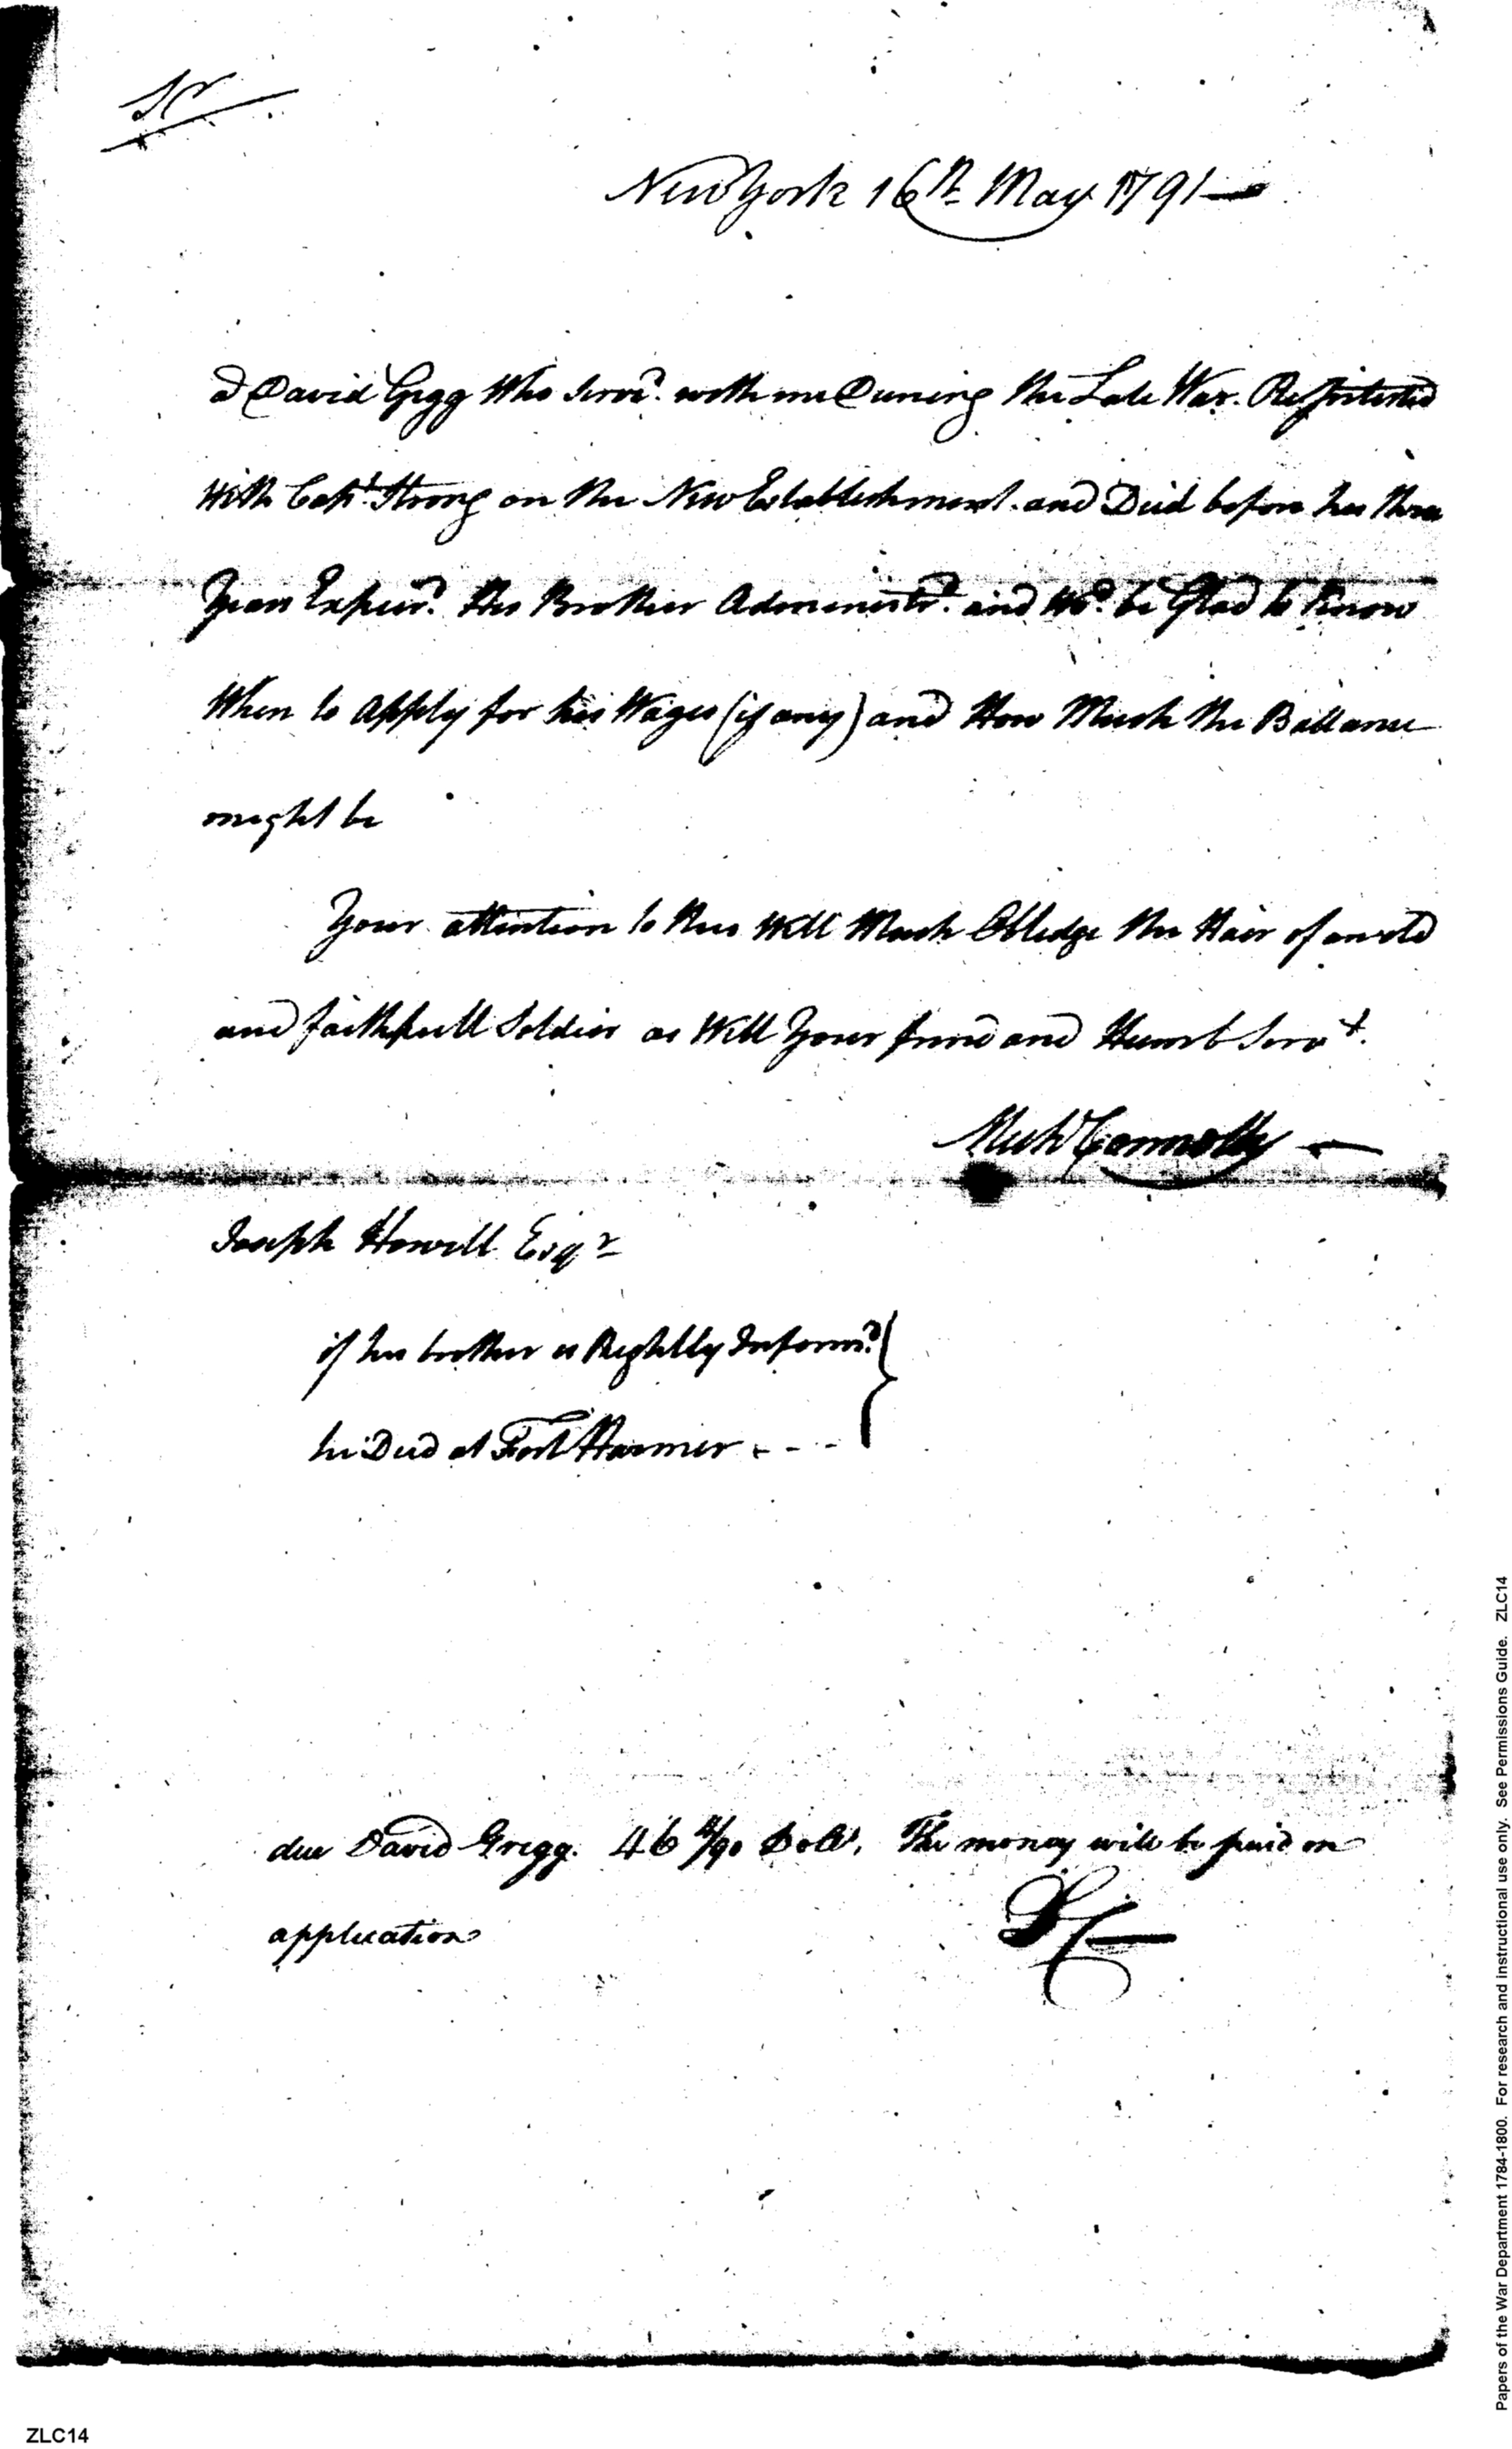 Sr
New York 16th May 1791
a David Gregg Who Servd. with me During the Late War.
With Capt. Strong on the New Establishment. and Died before his three
Years Expierd. His Brother Administrd. and Wd. be Glad to Know
When to apply for his Wages (if any) and How Much the Ballance
might be
Your attention to this Will Much Obledge the Hair of an old
and faithfull Soldier as Well Your frind and Humb Servt.
Michl Connolly
Joseph Howell Esqr
if his brother is Rightly Informd.
he Died at Fort Harmer - - -
due David Gregg. 46 /90 Dolls. The money will be paid on
application
Papers of the War Department 1784-1800. For research and instructional use only. See Permissions Guide. ZLC14
ZLC14